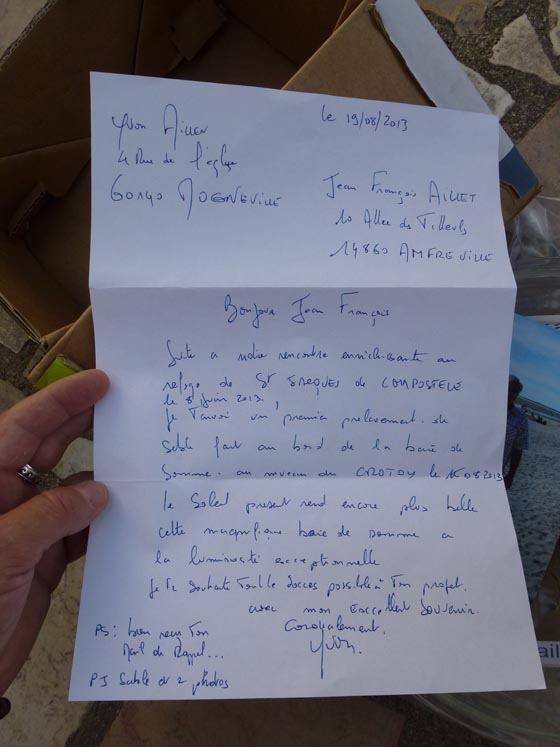 le 19/08/2013
Yvon
4 Rue de l'église
60140 MOGNEVILLE
Jean François AILLET
10 Allée des Tilleuls
14860 AMFREVILLE
Bonjour Jean François
Suite a notre rencontre enrichissante au
refuge de St JACQUES de COMPOSTELE
le 8 juin 2013,
je t'envoi un premier prelevement de
sable fait au bord de la baie de
Somme au niveau du CROTOY le 08 2013
le soleil present rend encore plus belle
cette magnifique baie de somme a
la luminosité exceptionnelle
Je te souhaite tout le succes possible à ton projet.
avec mon excellent souvenir.
Cordialement.
Yvon.
PS: bien reçu ton
Mail de Rappel...
PJ Sable et 2 photos
ail